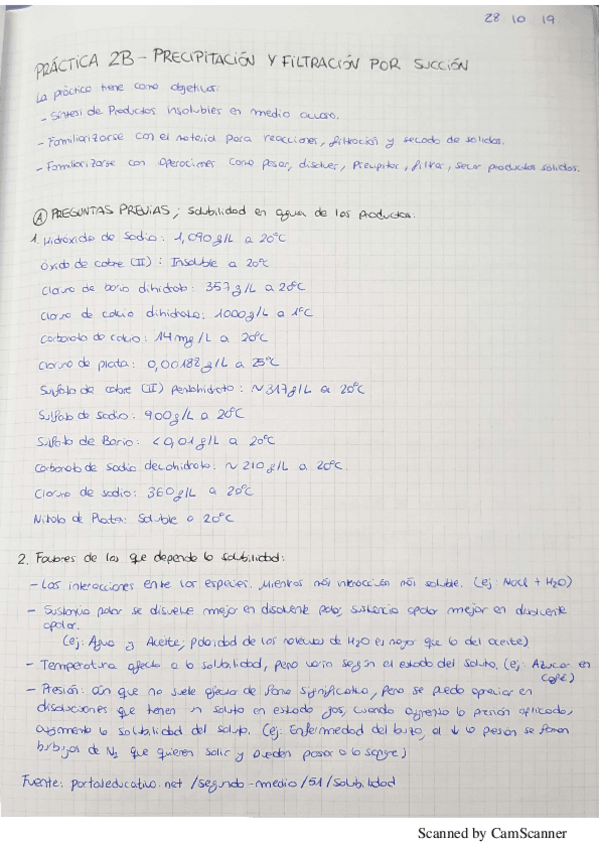 28 10 19
PRÁCTICA 2B - PRECIPITACIÓN Y FILTRACIÓN POR SUCCIÓN
La práctica tiene como objetivos:
- Síntesi de Productos insolubles en medio acuoso.
- Familiarizarse con el material para reacciones, filtración y secado de sólidos.
- Familiarizarse con operaciones como pesar, disolver, precipitar, filtrar, secar productos sólidos.
A PREGUNTAS PREVIAS; solubilidad en agua de los productos:
1. Hidróxido de sodio: 1,090 g/L a 20ºC
Óxido de cobre (II): Insoluble a 20ºC
Cloruro de bario dihidrato: 357 g/L a 20ºC
Cloruro de calcio dihidrato: 1000 g/L a 1ºC
Carbonato de calcio: 14 mg/L a 20ºC
Cloruro de plata: 0,00188 g/L a 25ºC
Sulfato de cobre (II) pentahidrato: ~317 g/L a 20ºC
Sulfato de Sodio: 900 g/L a 20ºC
Sulfato de Bario: <0,01 g/L a 20ºC
Carbonato de sodio decahidrato: ~210 g/L a 20ºC.
Cloruro de sodio: 360 g/L a 20ºC
Nitrato de Plata: Soluble a 20ºC
2. Factores de los que depende la solubilidad:
- Las interacciones entre las especies. Mientras más interacción más soluble. (ej: NaCl + H2O)
- Sustancia polar se disuelve mejor en disolvente polar, sustancia apolar mejor en disolvente
apolar.
(ej: Agua y Aceite; Polaridad de las moléculas de H2O es mayor que la del aceite)
- Temperatura afecta a la solubilidad, pero varía según el estado del soluto. (ej: Azúcar en
café)
- Presión: aún que no suele afectar de forma significativa, pero se puede apreciar en
disoluciones que tienen un soluto en estado gas, cuando aumenta la presión aplicada,
aumenta la solubilidad del soluto. (ej: Enfermedad del buzo, al ↓ la presión se forman
burbujas de N2 que quieren salir y pueden pasar a la sangre)
Fuente: portaleducativo.net /segundo-medio/51/solubilidad
Scanned by CamScanner